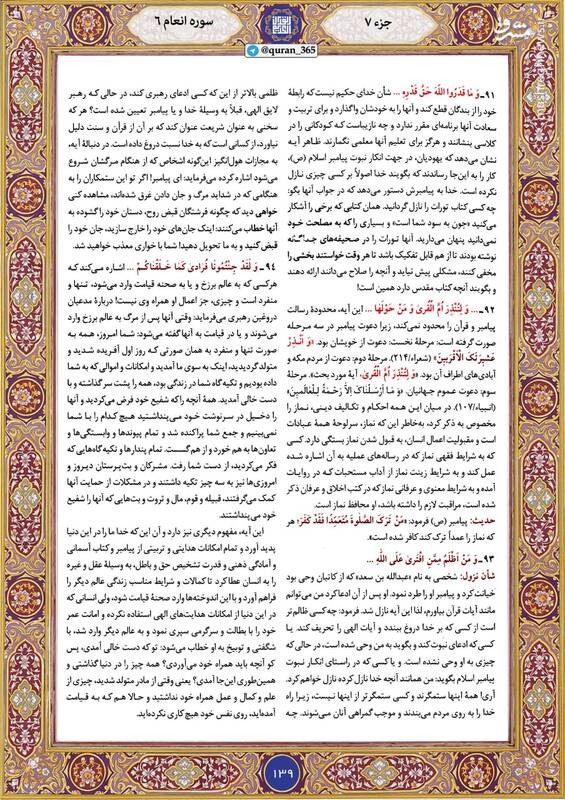 جزء ۷
سوره انعام ۶
@quran_365
مشرق
۹۱ـ وَ مَا قَدَرُوا اللّهَ حَقَّ قَدْرِهِ ... شأن خدای حکیم نیست که رابطهٔ
خود را از بندگان قطع کند و آنها را به خودشان واگذارد و برای تربیت و
سعادت آنها برنامه‌ای مقرر ندارد و چه نازیباست که کودکانی را در
کلاسی بنشانند و هرگز برای تعلیم آنها معلمی نگمارند. ظاهر آیه
نشان می‌دهد که یهودیان، در جهت انکار نبوت پیامبر اسلام (ص)،
کار را به این‌جا رساندند که بگویند خدا اصولاً بر کسی چیزی نازل
نکرده است. خدا به پیامبرش دستور می‌دهد که در جواب آنها بگو:
چه کسی کتاب تورات را نازل گردانید. همان کتابی که برخی را آشکار
می‌کنید «چون به سود شما است» و بسیاری را که به مصلحت خود
نمی‌دانید پنهان می‌دارید. آنها تورات را در صحیفه‌های جداگانه
نوشته بودند تا از هم قابل تفکیک باشد تا هر وقت خواستند بخشی را
مخفی کنند، مشکلی پیش نیاید و آنچه را صلاح می‌دانند ارائه دهند
و بگویند آنچه کتاب مقدس دارد همین است!
۹۲ـ ... وَ لِتُنْذِرَ أُمَّ الْقُرَىٰ وَ مَنْ حَوْلَهَا ... این آیه، محدودهٔ رسالت
پیامبر و قرآن را محدود نمی‌کند، زیرا دعوت پیامبر در سه مرحله
صورت گرفته است: مرحلهٔ نخست: دعوت از خویشان بود. «وَ أَنْذِرْ
عَشِيرَتَكَ الْأَقْرَبِينَ» (شعراء/۲۱۴). مرحلهٔ دوم: دعوت از مردم مکه و
آبادی‌های اطراف آن بود. «وَ لِتُنْذِرَ أُمَّ الْقُرَىٰ، (آیهٔ مورد بحث). مرحلهٔ
سوم: دعوت عموم جهانیان. «وَ مَا أَرْسَلْنَاكَ إِلَّا رَحْمَةً لِلْعَالَمِينَ»
(انبیاء/۱۰۷). در میان این همه احکام و تکالیف دینی، نماز را
مخصوص به ذکر کرد، به‌خاطر این که نماز، سرلوحهٔ همهٔ عبادات
است و مقبولیت اعمال انسان، به قبول شدن نماز بستگی دارد. کسی
که به شرایط فقهی نماز که در رساله‌های عملیه به آن اشاره شده
عمل کند و به شرایط زینت نماز از آداب مستحبات که در روایات
آمده و به شرایط معنوی و عرفانی نماز که در کتب اخلاق و عرفان ذکر
شده است، مراقبت لازم را داشته باشد، او محافظ نماز است.
حدیث: پیامبر (ص) فرمود: «مَنْ تَرَكَ الصَّلٰوةَ مُتَعَمِّداً فَقَدْ كَفَرَ؛ هر
که نماز را عمداً ترک کند کافر شده است.
۹۳ـ وَ مَنْ أَظْلَمُ مِمَّنِ افْتَرَىٰ عَلَى اللَّهِ ...
شأن نزول: شخصی به نام «عبدالله بن سعد» که از کاتبان وحی بود
خیانت کرد و پیامبر او را طرد نمود. او پس از آن ادعا کرد من می‌توانم
مانند آیات قرآن بیاورم، لذا این آیه نازل شد. فرمود: چه کسی ظالم‌تر
است از کسی که بر خدا دروغ ببندد و آیات الهی را تحریف کند. یا
کسی که ادعای نبوت کند و بگوید به من وحی شده است، در حالی که
چیزی به او وحی نشده است. و یا کسی که در راستای انکار نبوت
پیامبر اسلام بگوید: من همانند آنچه خدا نازل کرده نازل خواهم کرد.
آری! همهٔ اینها ستمگرند و کسی ستمگرتر از اینها نیست، زیرا راه
خدا را به روی مردم می‌بندند و موجب گمراهی آنان می‌شوند. چه
ظلمی بالاتر از این که کسی ادعای رهبری کند، در حالی که رهبر
لایق الهی، قبلاً به وسیلهٔ خدا و یا پیامبر تعیین شده است؟ هر که
سخنی به عنوان شریعت عنوان کند که بر آن از قرآن و سنت دلیل
نیاورد، از کسانی است که به خدا نسبت دروغ داده است. در دنبالهٔ آیه،
به مجازات هول‌انگیز این‌گونه اشخاص که از هنگام مرگشان شروع
می‌شود اشاره کرده می‌فرماید: ای پیامبر! اگر تو این ستمکاران را به
هنگامی که در شداید مرگ و جان دادن غرق شده‌اند، مشاهده کنی
خواهی دید که چگونه فرشتگان قبض روح، دستان خود را گشوده به
آنها خطاب می‌کنند: اینک جان‌های خود را خارج سازید، جان خود را
قبض کنید و به ما تحویل دهید! شما با خواری معذب خواهید شد.
۹۴ـ وَ لَقَدْ جِئْتُمُونَا فُرَادَىٰ كَمَا خَلَقْنَاكُمْ ... اشاره می‌کند که
هرکسی که به عالم برزخ و یا به صحنهٔ قیامت وارد می‌شود، تنها و
منفرد است و چیزی، جز اعمال او همراه وی نیست! دربارهٔ مدعیان
دروغین رهبری می‌فرماید: وقتی آنها پس از مرگ به عالم برزخ وارد
می‌شوند و یا در قیامت به آنها گفته می‌شود: شما امروز، همه به
صورت تنها و منفرد به همان صورتی که روز اول آفریده شدید و
متولد گردیدید، اینک به سوی ما آمدید و امکانات و اموالی که به شما
داده بودیم و تکیه‌گاه شما در زندگی بود، همه را پشت سر گذاشته و با
دست خالی آمدید. همهٔ آنچه را که شفیع خود فرض می‌کردید و آنها
را دخیل در سرنوشت خود می‌پنداشتید هیچ کدام را با شما
نمی‌بینیم و جمع شما پراکنده شد و تمام پیوندها و وابستگی‌ها و
تعاون‌ها به هم خورد و از هم گسست. تمام پندارها و تکیه‌گاه‌هایی که
فکر می‌کردید، از دست شما رفت. مشرکان و بت‌پرستان دیروز و
امروزی‌ها نیز به سه چیز تکیه داشتند و در مشکلات از حمایت آنها
کمک می‌گرفتند، قبیله و قوم، مال و ثروت و بت‌هایی که آنها را شفیع
خود می‌پنداشتند.
این آیه، مفهوم دیگری نیز دارد و آن این که خدا ما را در این دنیا
پدید آورد و تمام امکانات هدایتی و تربیتی از پیامبر و کتاب آسمانی
و آمادگی ذهنی و قدرت تشخیص حق و باطل، به وسیلهٔ عقل و غیره
را به انسان عطا کرد تا کمالات و شرایط مناسب زندگی عالم دیگر را
فراهم آورد و با این اندوخته‌ها وارد صحنهٔ قیامت شود، ولی انسانی که
در این دنیا از امکانات هدایت‌های الهی استفاده نکرده و امانت عمر
خود را با بطالت و سرگرمی سپری نمود و به عالم دیگر وارد شد، با
شگفتی و توبیخ به او خطاب می‌شود: تو که دست خالی آمدی، پس
کو آنچه باید همراه خود می‌آوردی؟ همه چیز را در دنیا گذاشتی و
همین‌طوری این‌جا آمدی؟ یعنی وقتی از مادر متولد شدید، چیزی از
علم و کمال و عمل همراه خود نداشتید و حالا هم که به قیامت
آمده‌اید، روی نفس خود هیچ کاری نکرده‌اید.
۱۳۹